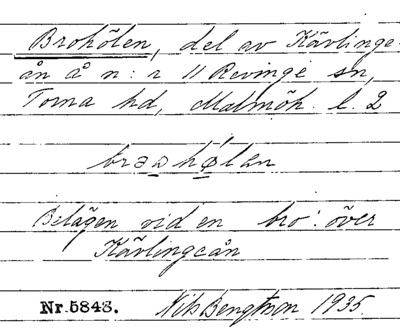 Brohölen, del av Kävlinge-
ån å n:r 11 Revinge sn,
Torna hd, Malmöh. l. 2
brωhølan
Belägen vid en bro över
Kävlingeån
Nr. 5843. Nils Bengtson 1935.